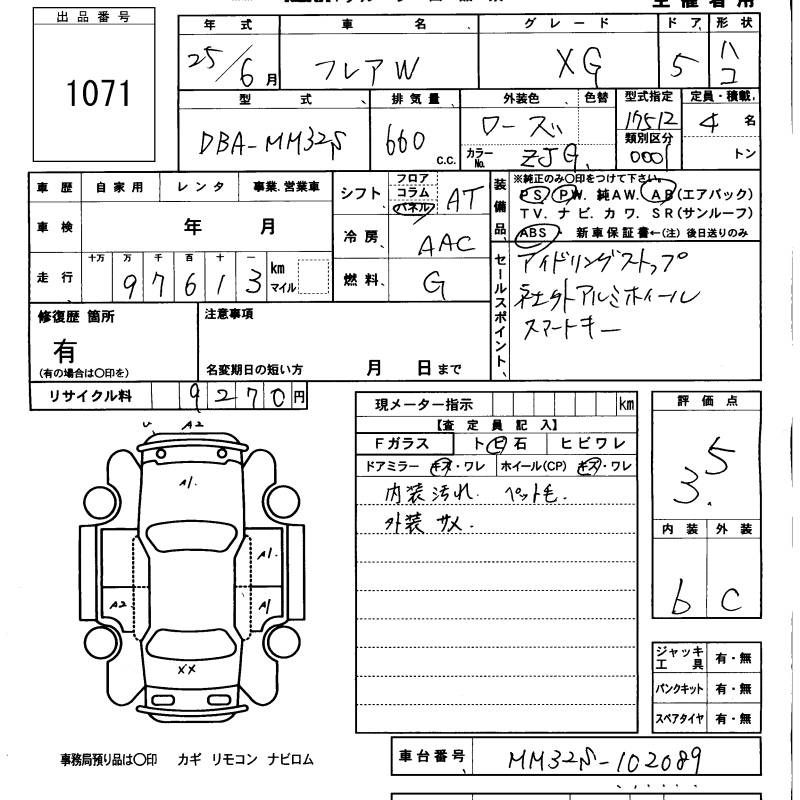 出品番号
1071
年式 車名 グレード ドア 形状
25/6月 フレアW XG 5 ハコ
型式 排気量 外装色 色替 型式指定 定員・積載
DBA-MM32S 660 c.c. ローズ 17512 4名
カラーNo. ZJG 類別区分 0001 トン
車歴 自家用 レンタ 事業.営業車
車検 年 月
走行 十万 万 千 百 十 一
97613 km マイル
シフト フロア コラム パネル AT
冷房 AAC
燃料 G
装備品
※純正のみ○印をつけて下さい。
PS. PW. 純AW. AB(エアバック)
TV. ナビ. カワ. SR(サンルーフ)
ABS・ 新車保証書←(注) 後日送りのみ
セールスポイント
アイドリングストップ
社外アルミホイール
スマートキー
修復歴 箇所
有
(有の場合は○印を)
注意事項
名変期日の短い方 月 日まで
リサイクル料 9270円
U A2
A1.
A1.
A2 A1
XX
現メーター指示 km
【査定員記入】
Fガラス ト ビ 石 ヒビワレ
ドアミラー キズ・ワレ ホイール(CP) キズ・ワレ
内装汚れ. ペット毛.
外装サメ.
評価点
3.5
内装 外装
b C
ジャッキ工具 有・無
パンクキット 有・無
スペアタイヤ 有・無
事務局預り品は○印 カギ リモコン ナビロム
車台番号 MM32S-102089